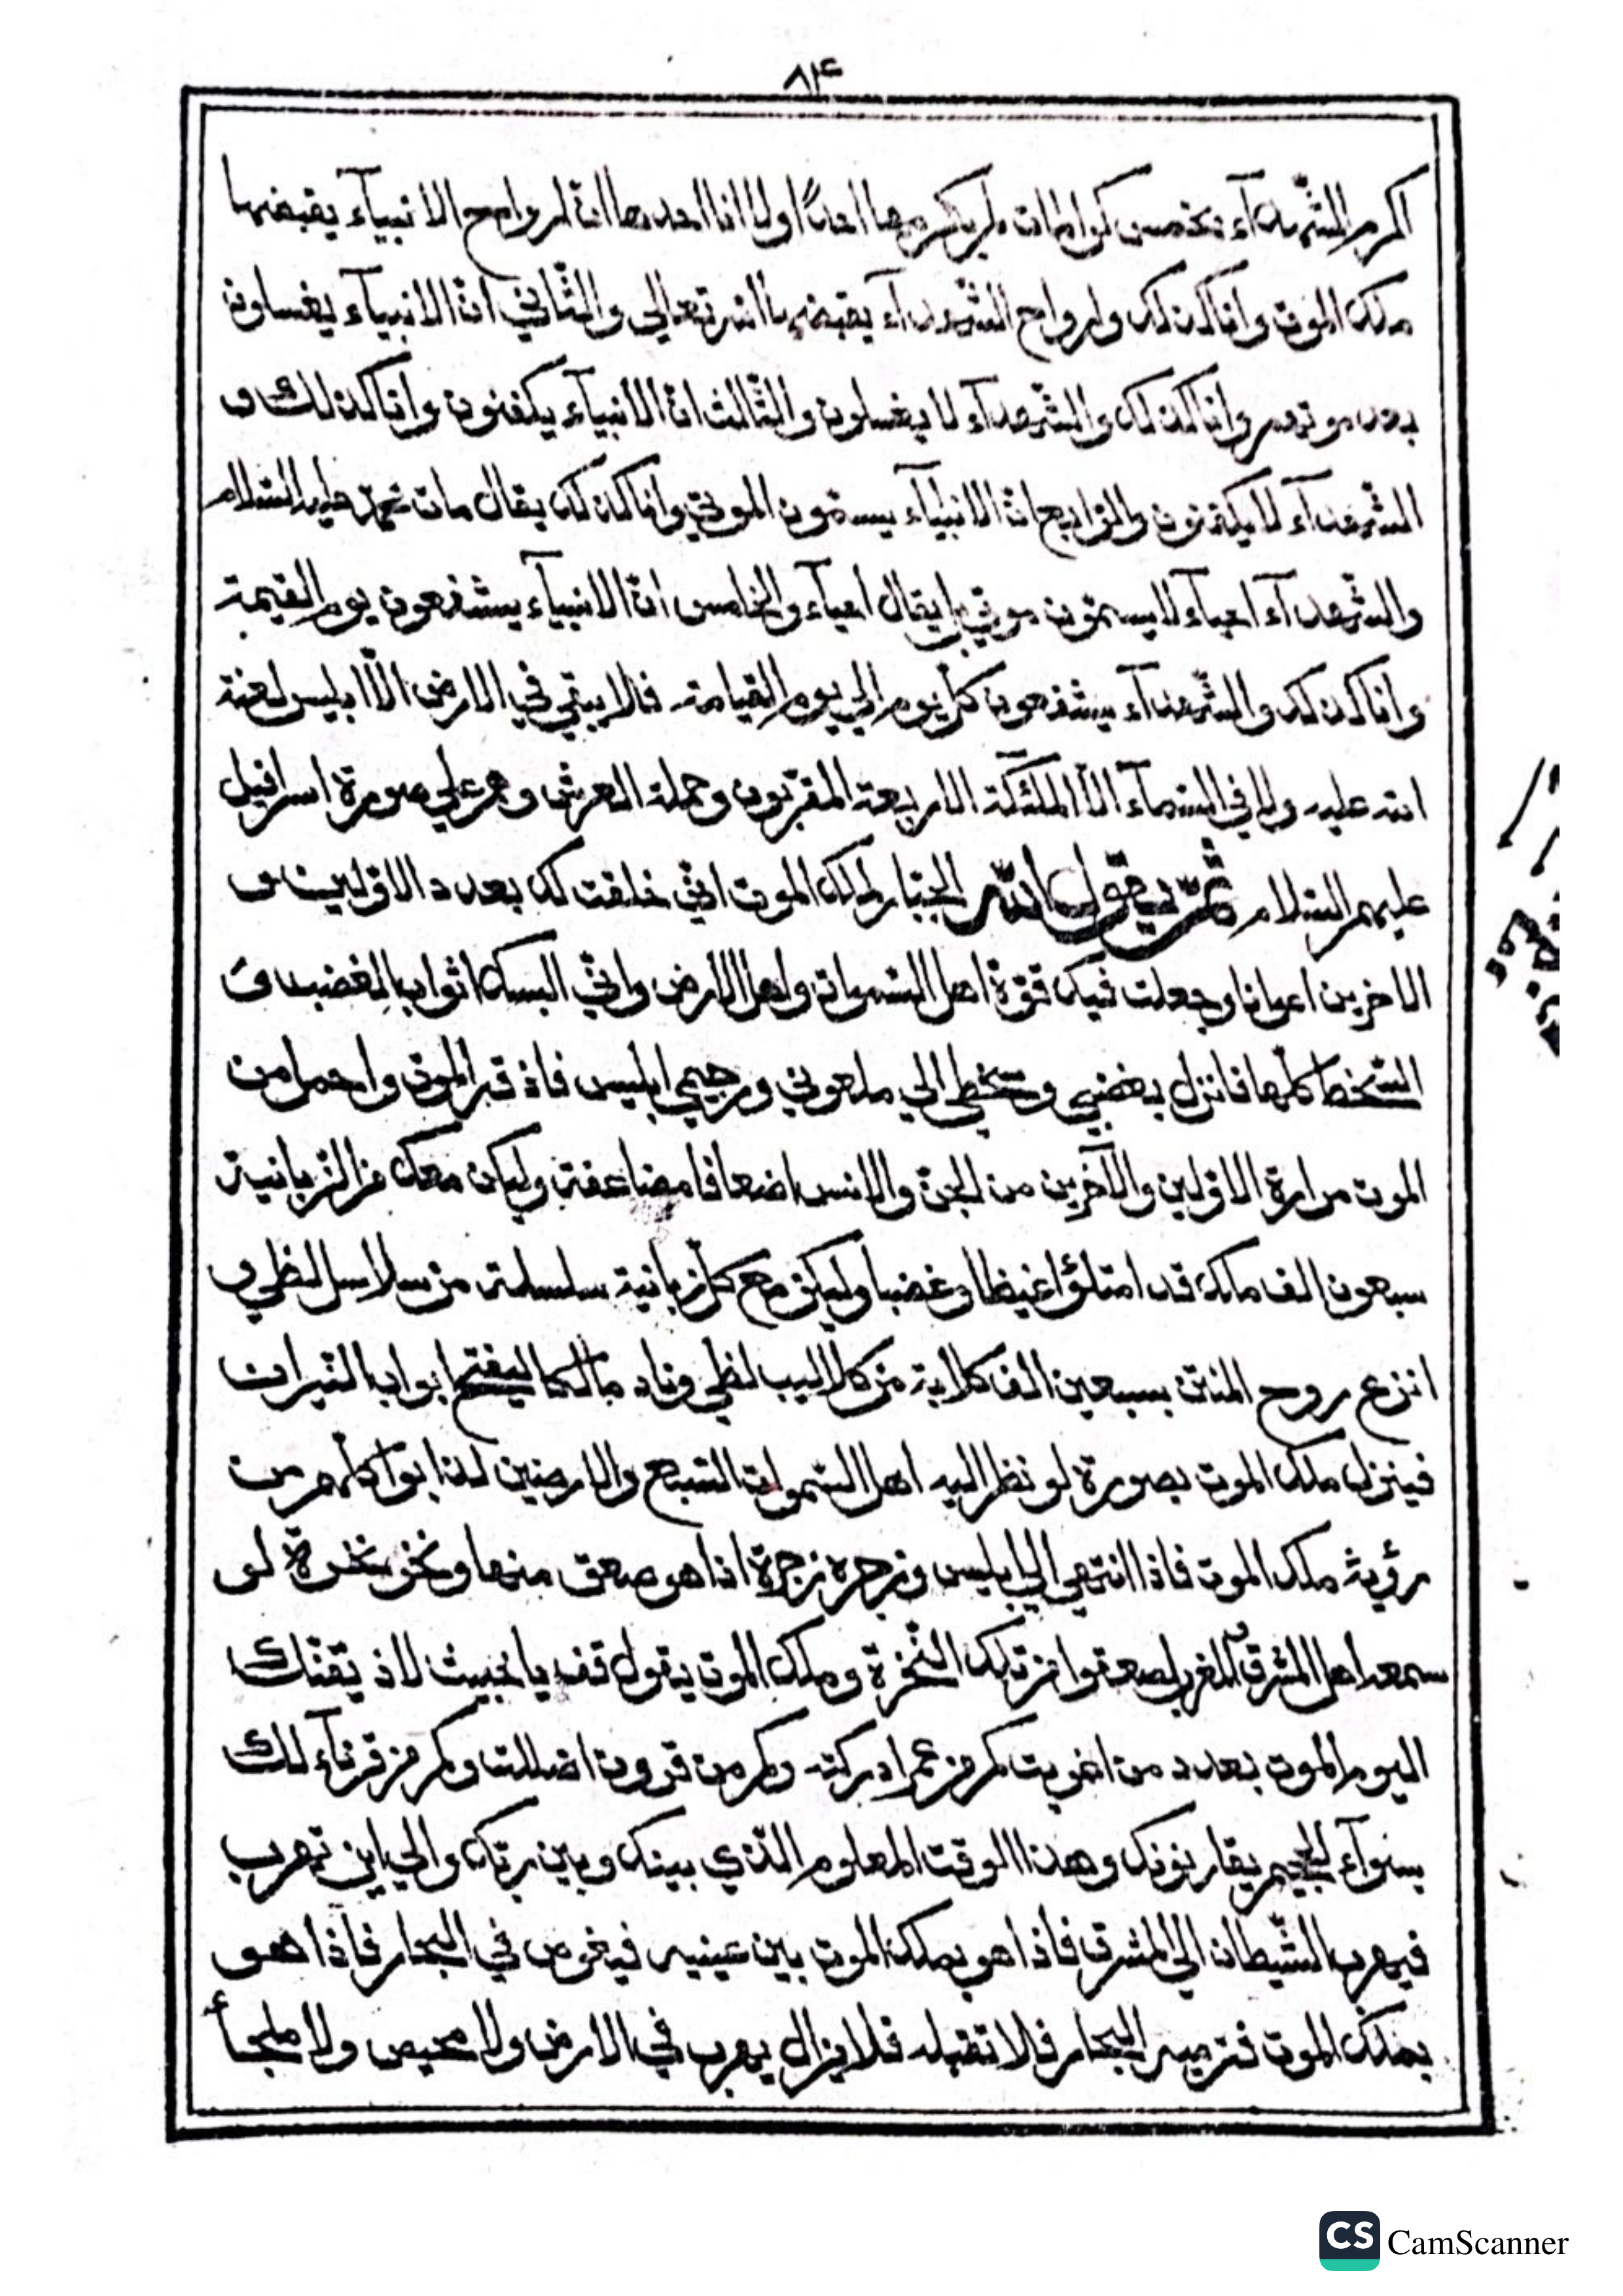 ٨٢۴
اكرم الشّهدآء بخمس كرامات لم يكرمها احدًا ولا انا احدها انّ ارواح الانبيآء يقبضها
ملك الموت وانا كذلك وارواح الشّهدآء يقبضها الله تعالي والثّاني انّ الانبيآء يغسلون
بعد موتهم وانا كذلك والشّهدآء لا يغسلون والثّالث انّ الانبيآء يكفنون وانا كذلك و
الشّهدآء لا يكفنون والرّابع انّ الانبيآء يسمّون الموتي وانا كذلك يقال مات محمّد عليه السّلام
والشّهدآء احياء لا يسمّون موتي بل يقال احيآء والخامس انّ الانبيآء يشفعون يوم القيمة
وانا كذلك والشّهدآء يشفعون كلّ يوم الي يوم القيامة فلا يبقي في الارض الّا ابليس لعنة
الله عليه ولا في السّمآء الّا الملئكة الاربعة المقرّبون وحملة العرش وهم علي صورة اسرافيل
عليهم السّلام ثمّ يقول الله الجبّار لملك الموت انّي خلقت لك بعدد الاوّلين و
الاخرين اعوانا وجعلت فيك قوّة اهل السّموات واهل الارض وانّي البسك اثواب الغضب و
السّخط كلّها فانزل بغضبي وسخطي الي ملعوني ورجيمي ابليس فاذقه الموت واحمل من
الموت مرارة الاوّلين والآخرين من الجنّ والانس اضعافا مضاعفة وليكن معك من الزبانية
سبعون الف ملك قد امتلؤا غيظا وغضبا وليكن مع كلّ زبانية سلسلة من سلاسل لظي و
انزع روح المنتن بسبعين الف كلابة من كلاليب لظي وناد مالكا ليفتح ابواب النّيران
فينزل ملك الموت بصورة لو نظر اليه اهل السّموات السّبع والارضين لذابوا كلّهم من
رؤية ملك الموت فاذا انتهي الي ابليس وزجره زجرة اذا هو صعق منها ونخر نخرة لو
سمعه اهل المشرق والمغرب لصعقوا من تلك النّخرة وملك الموت يقول قف يا خبيث لاذيقنّك
اليوم الموت بعدد من اغويت كم من عمر ادركته وكم من قرون اضللت وكم من قرنآء لك
بسوآء الجحيم يقارنونك وهذا الوقت المعلوم الّذي بينك وبين ربّك والي اين تهرب
فيهرب الشّيطان الي المشرق فاذا هو بملك الموت بين عينيه فيغوص في البحار فاذا هو
بملك الموت فترميه البحار فلا تقبله فلا يزال يهرب في الارض ولا محيص ولا ملجأ
CS CamScanner